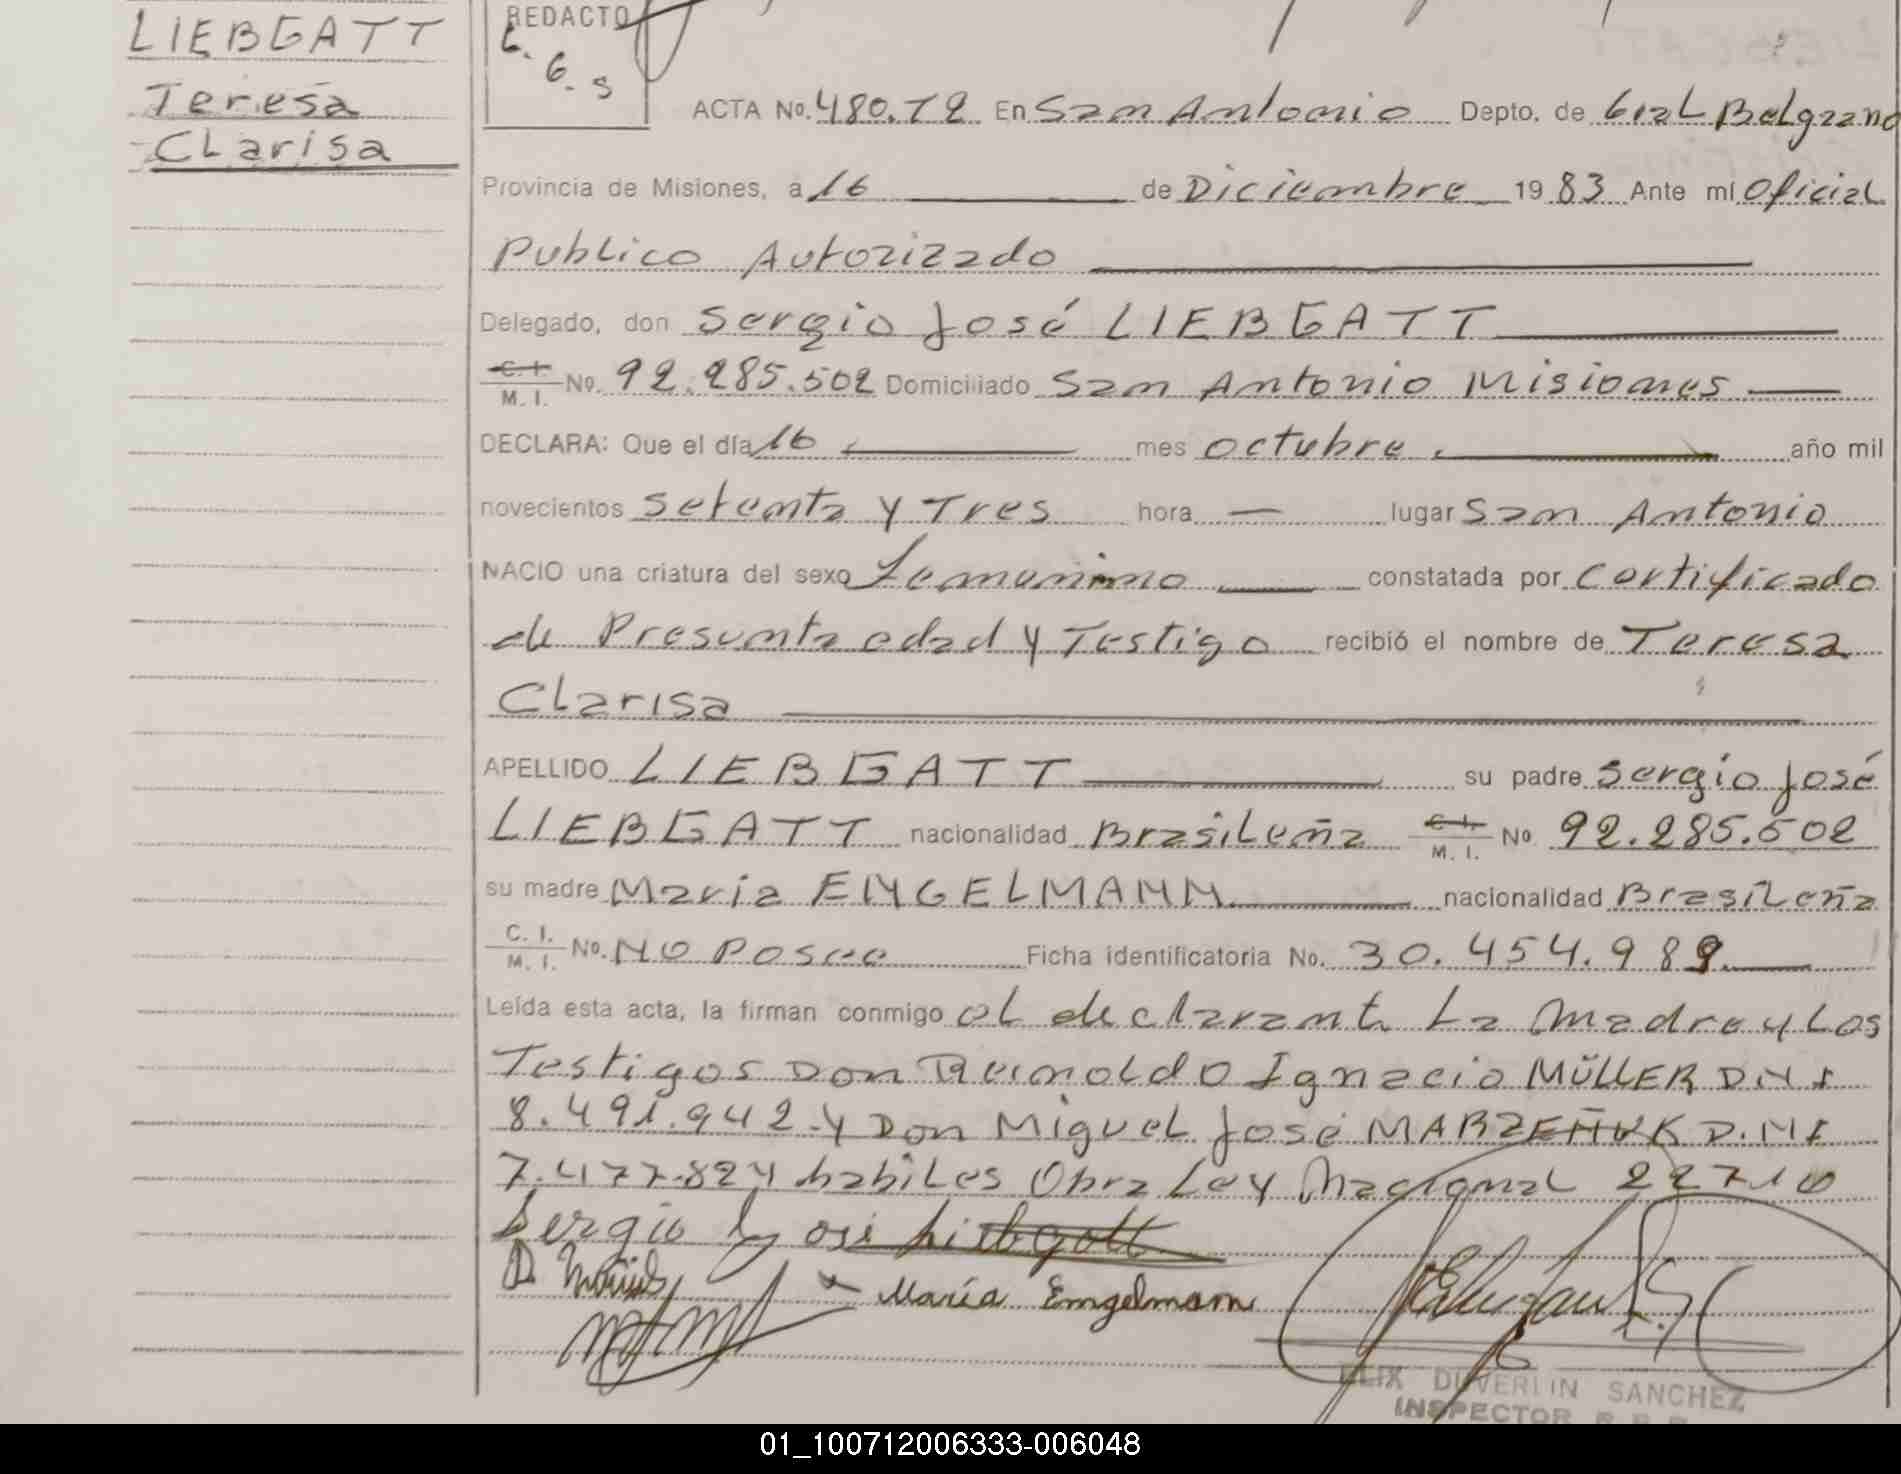 LIEBGATT
Teresa
Clarisa
REDACTO
ACTA No. 480.T2 En San Antonio Depto. de Gral Belgrano
Provincia de Misiones, a 16 de Diciembre 19 83 Ante mí Oficial
Publico Autorizado
Delegado, don Sergio José LIEBGATT
C. I. M. I. No. 92.285.502 Domiciliado San Antonio Misiones
DECLARA: Que el día 16 mes octubre año mil
novecientos setenta y Tres hora — lugar San Antonio
NACIO una criatura del sexo femenino constatada por certificado
de Presunta edad y Testigo recibió el nombre de Teresa
Clarisa
APELLIDO LIEBGATT su padre Sergio José
LIEBGATT nacionalidad Brasileña C. I. M. I. No 92.285.502
su madre Maria ENGELMANN nacionalidad Brasileña
C. I. M. I. No. NO Posee Ficha identificatoria No. 30.454.989
Leída esta acta, la firman conmigo el declarante La Madre y Los
Testigos Don Reinoldo Ignacio MÜLLER D.N I
8.491.942 y Don Miguel José D.NI
7.477.824 habiles Obra Ley Nacional 22710
Sergio José Liebgott
María Engelmann
ELIX DUVERLIN SANCHEZ
INSPECTOR
01_100712006333-006048